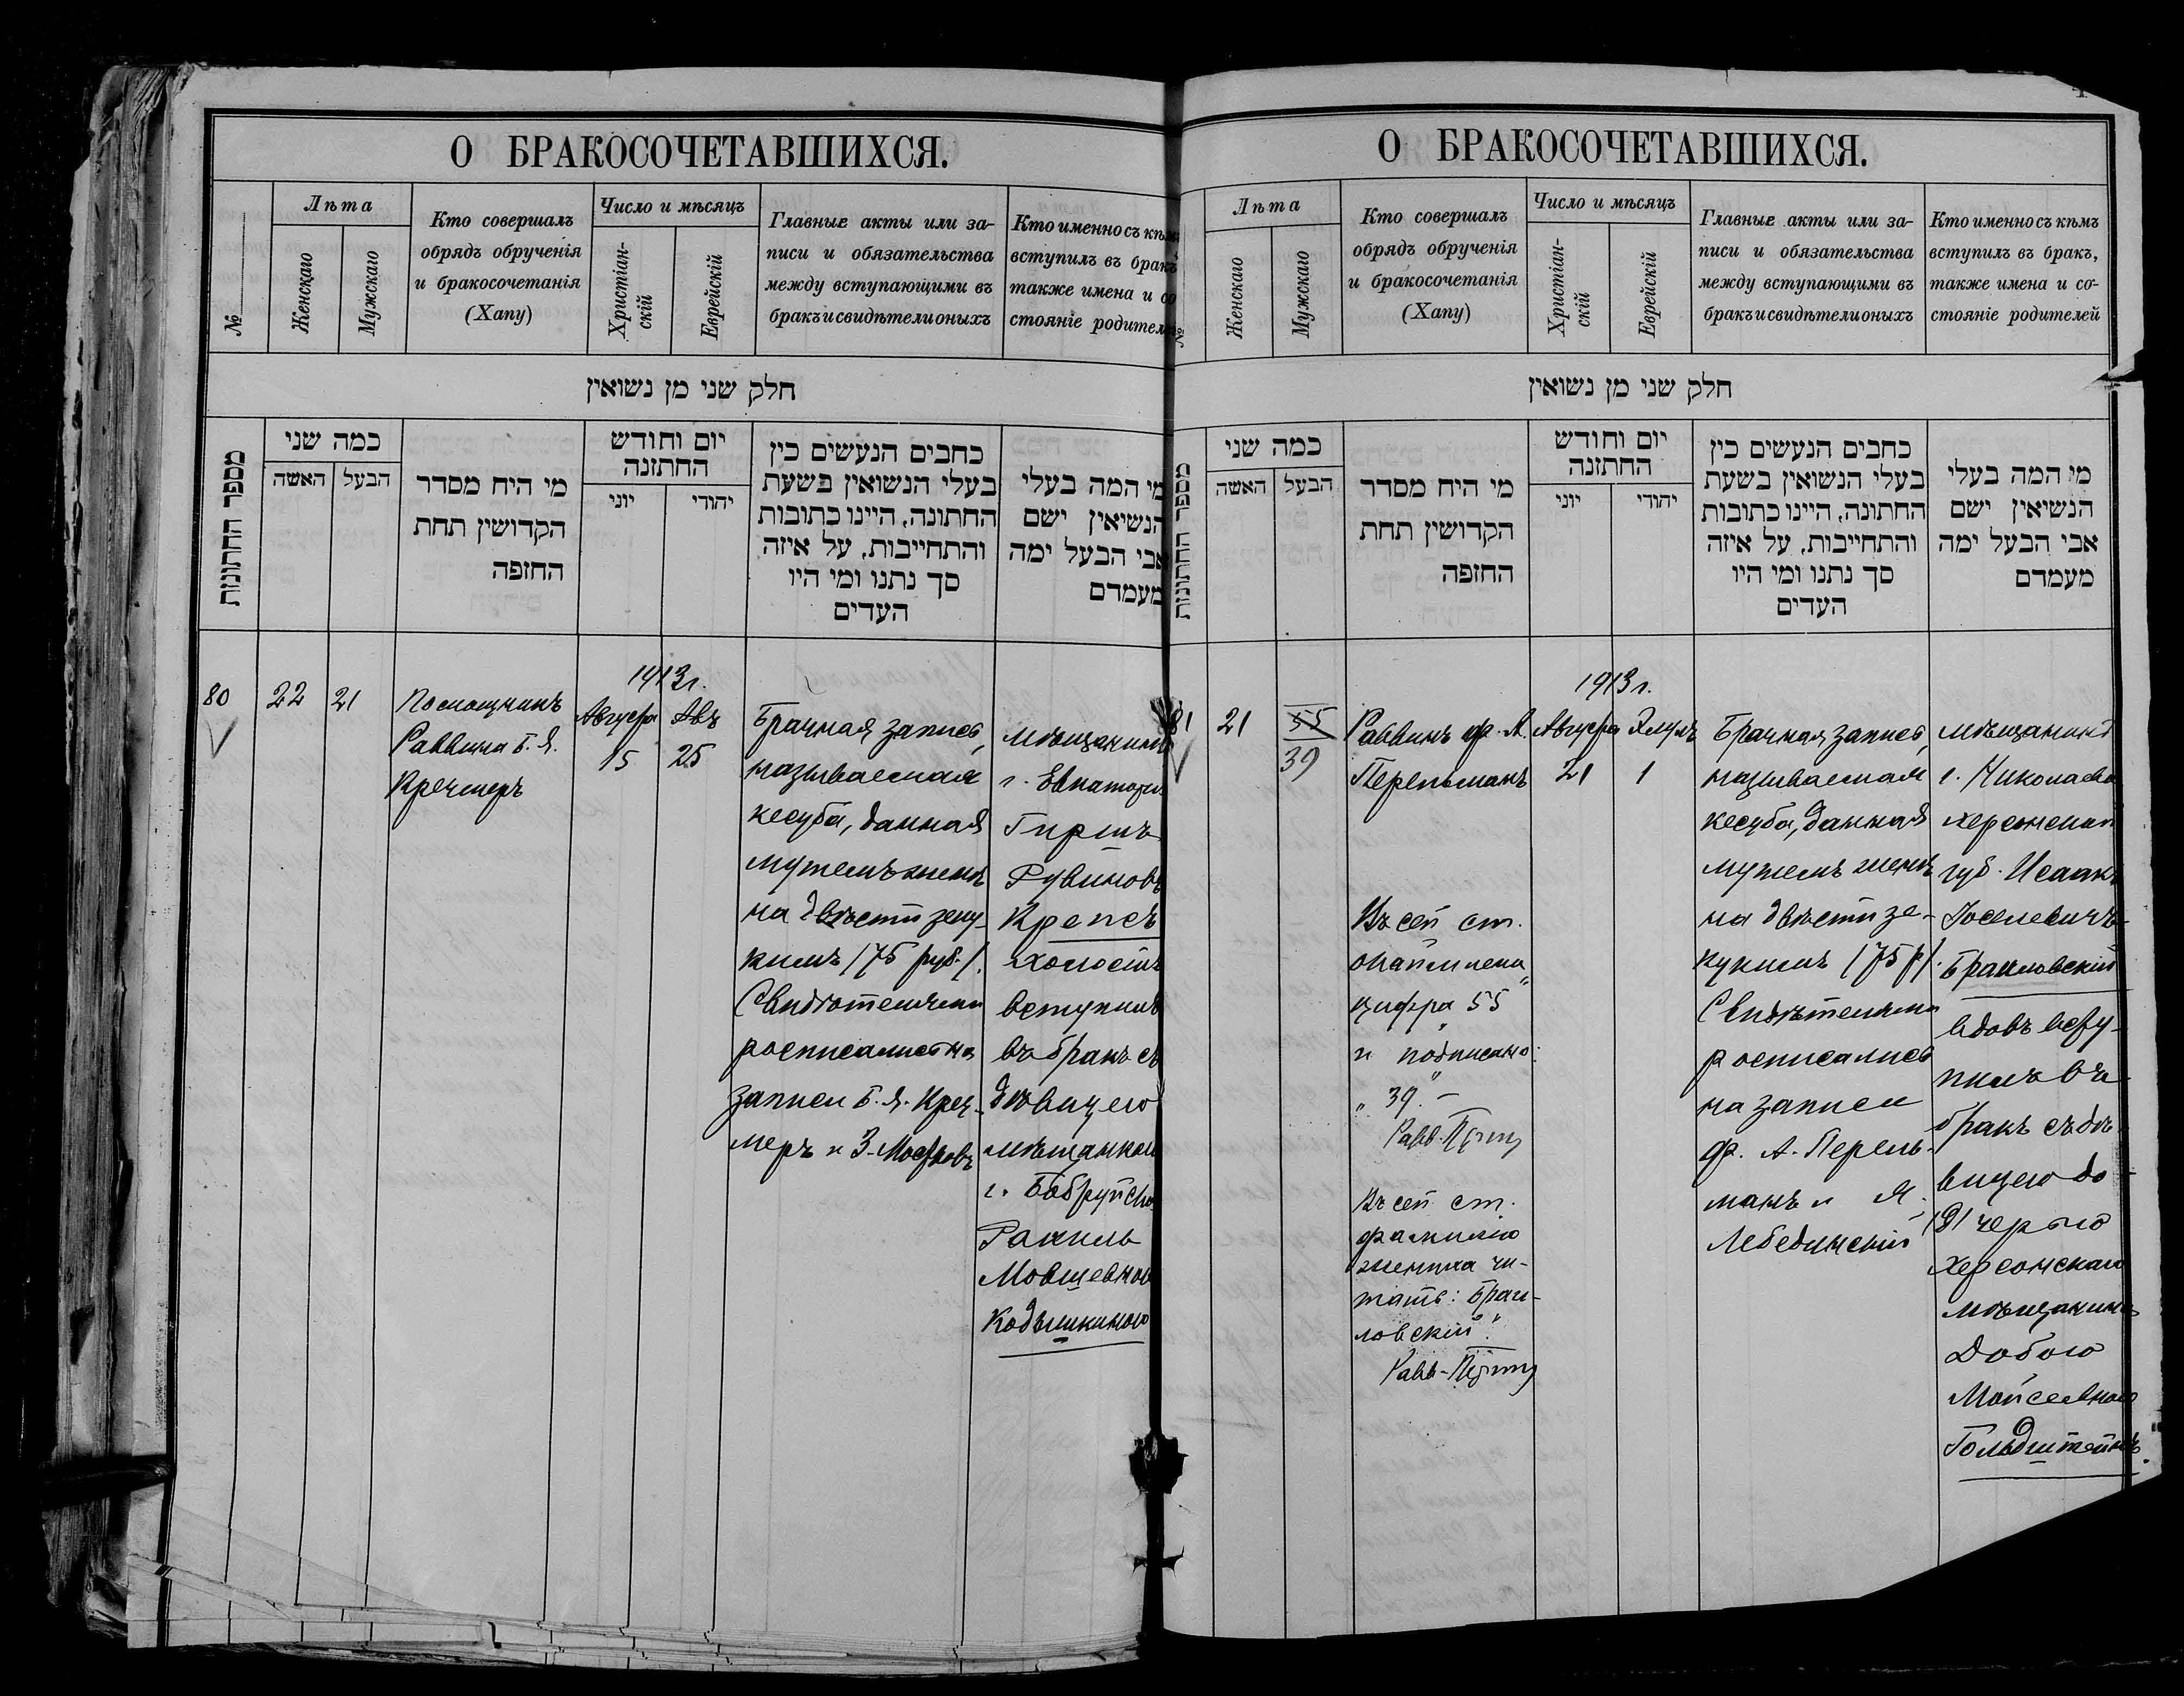 О БРАКОСОЧЕТАВШИХСЯ.
№
Лѣта
Женскаго
Мужскаго
Кто совершалъ
обрядъ обрученія
и бракосочетанія
(Хапу)
Число и мѣсяцъ
Христіан-
скій
Еврейскій
Главные акты или за-
писи и обязательства
между вступающими въ
бракъ и свидѣтели оныхъ
Кто именно съ кѣмъ
вступилъ въ бракъ
также имена и со
стояніе родител
חלק שני מן נשואין
מספר החתונות
כמה שני
האשה
הבעל
מי היח מסדר
הקדושין תחת
החופה
יום וחודש
החתונה
יוני
יהודי
כחבים הנעשים כין
בעלי הנשואין בשעת
החתונה, היינו כתובות
והתחייבות, על איזה
סך נתנו ומי היו
העדים
מי המה בעלי
הנשיאין ישם
אבי הבעל ימה
מעמדם
80
22
21
Помощникъ
Раввина Б. Я.
Кречмеръ
1913г.
Августа
15
Авъ
25
Брачная запись,
называемая
кесуба, данная
мужемъ женѣ
на двѣсти зеку-
кимъ /75 руб./.
Свидѣтелями
росписались на
записи Б. Я. Креч-
меръ и З.
мѣщанинъ
г. Евпатори
Гиршъ
Рувиновъ
Крепсъ
холостъ
вступилъ
въ бракъ съ
дѣвицею
мѣщанкой
г. Бобруйска
Рахиль
Мовшевной
Кодышкиною
О БРАКОСОЧЕТАВШИХСЯ.
№
Лѣта
Женскаго
Мужскаго
Кто совершалъ
обрядъ обрученія
и бракосочетанія
(Хапу)
Число и мѣсяцъ
Христіан-
скій
Еврейскій
Главные акты или за-
писи и обязательства
между вступающими въ
бракъ и свидѣтели оныхъ
Кто именно съ кѣмъ
вступилъ въ бракъ,
также имена и со-
стояніе родителей
חלק שני מן נשואין
מספר החתונות
כמה שני
האשה
הבעל
מי היח מסדר
הקדושין תחת
החופה
יום וחודש
החתונה
יוני
יהודי
כחבים הנעשים כין
בעלי הנשואין בשעת
החתונה, היינו כתובות
והתחייבות, על איזה
סך נתנו ומי היו
העדים
מי המה בעלי
הנשיאין ישם
אבי הבעל ימה
מעמדם
81
21
55
39
Раввинъ Ф. А.
Перельманъ
1913 г.
Августа
21
Элулъ
1
Въ сей ст.
цифра "55"
и подписано:
"39". –
Рабв.
Въ сей ст.
фамилію
жениха чи-
тать: "Браи-
ловскій".
Рабв-
Брачная запись,
называемая
кесуба, данная
мужемъ женѣ
на двѣсти зе-
кукимъ /75 р/.
Свидѣтелями
росписались
на записи
Ф. А. Перель-
манъ и Я.
Лебединскій
мѣщанинъ
г. Николаева
херсонской
губ. Исаакъ
Іоселевичъ
Браиловскій
вдовъ всту-
пилъ въ
бракъ съ дѣ-
вицею до-
черью
херсонскаго
мѣщанина
Добою
Мойсеевною
Гольдштейнъ.